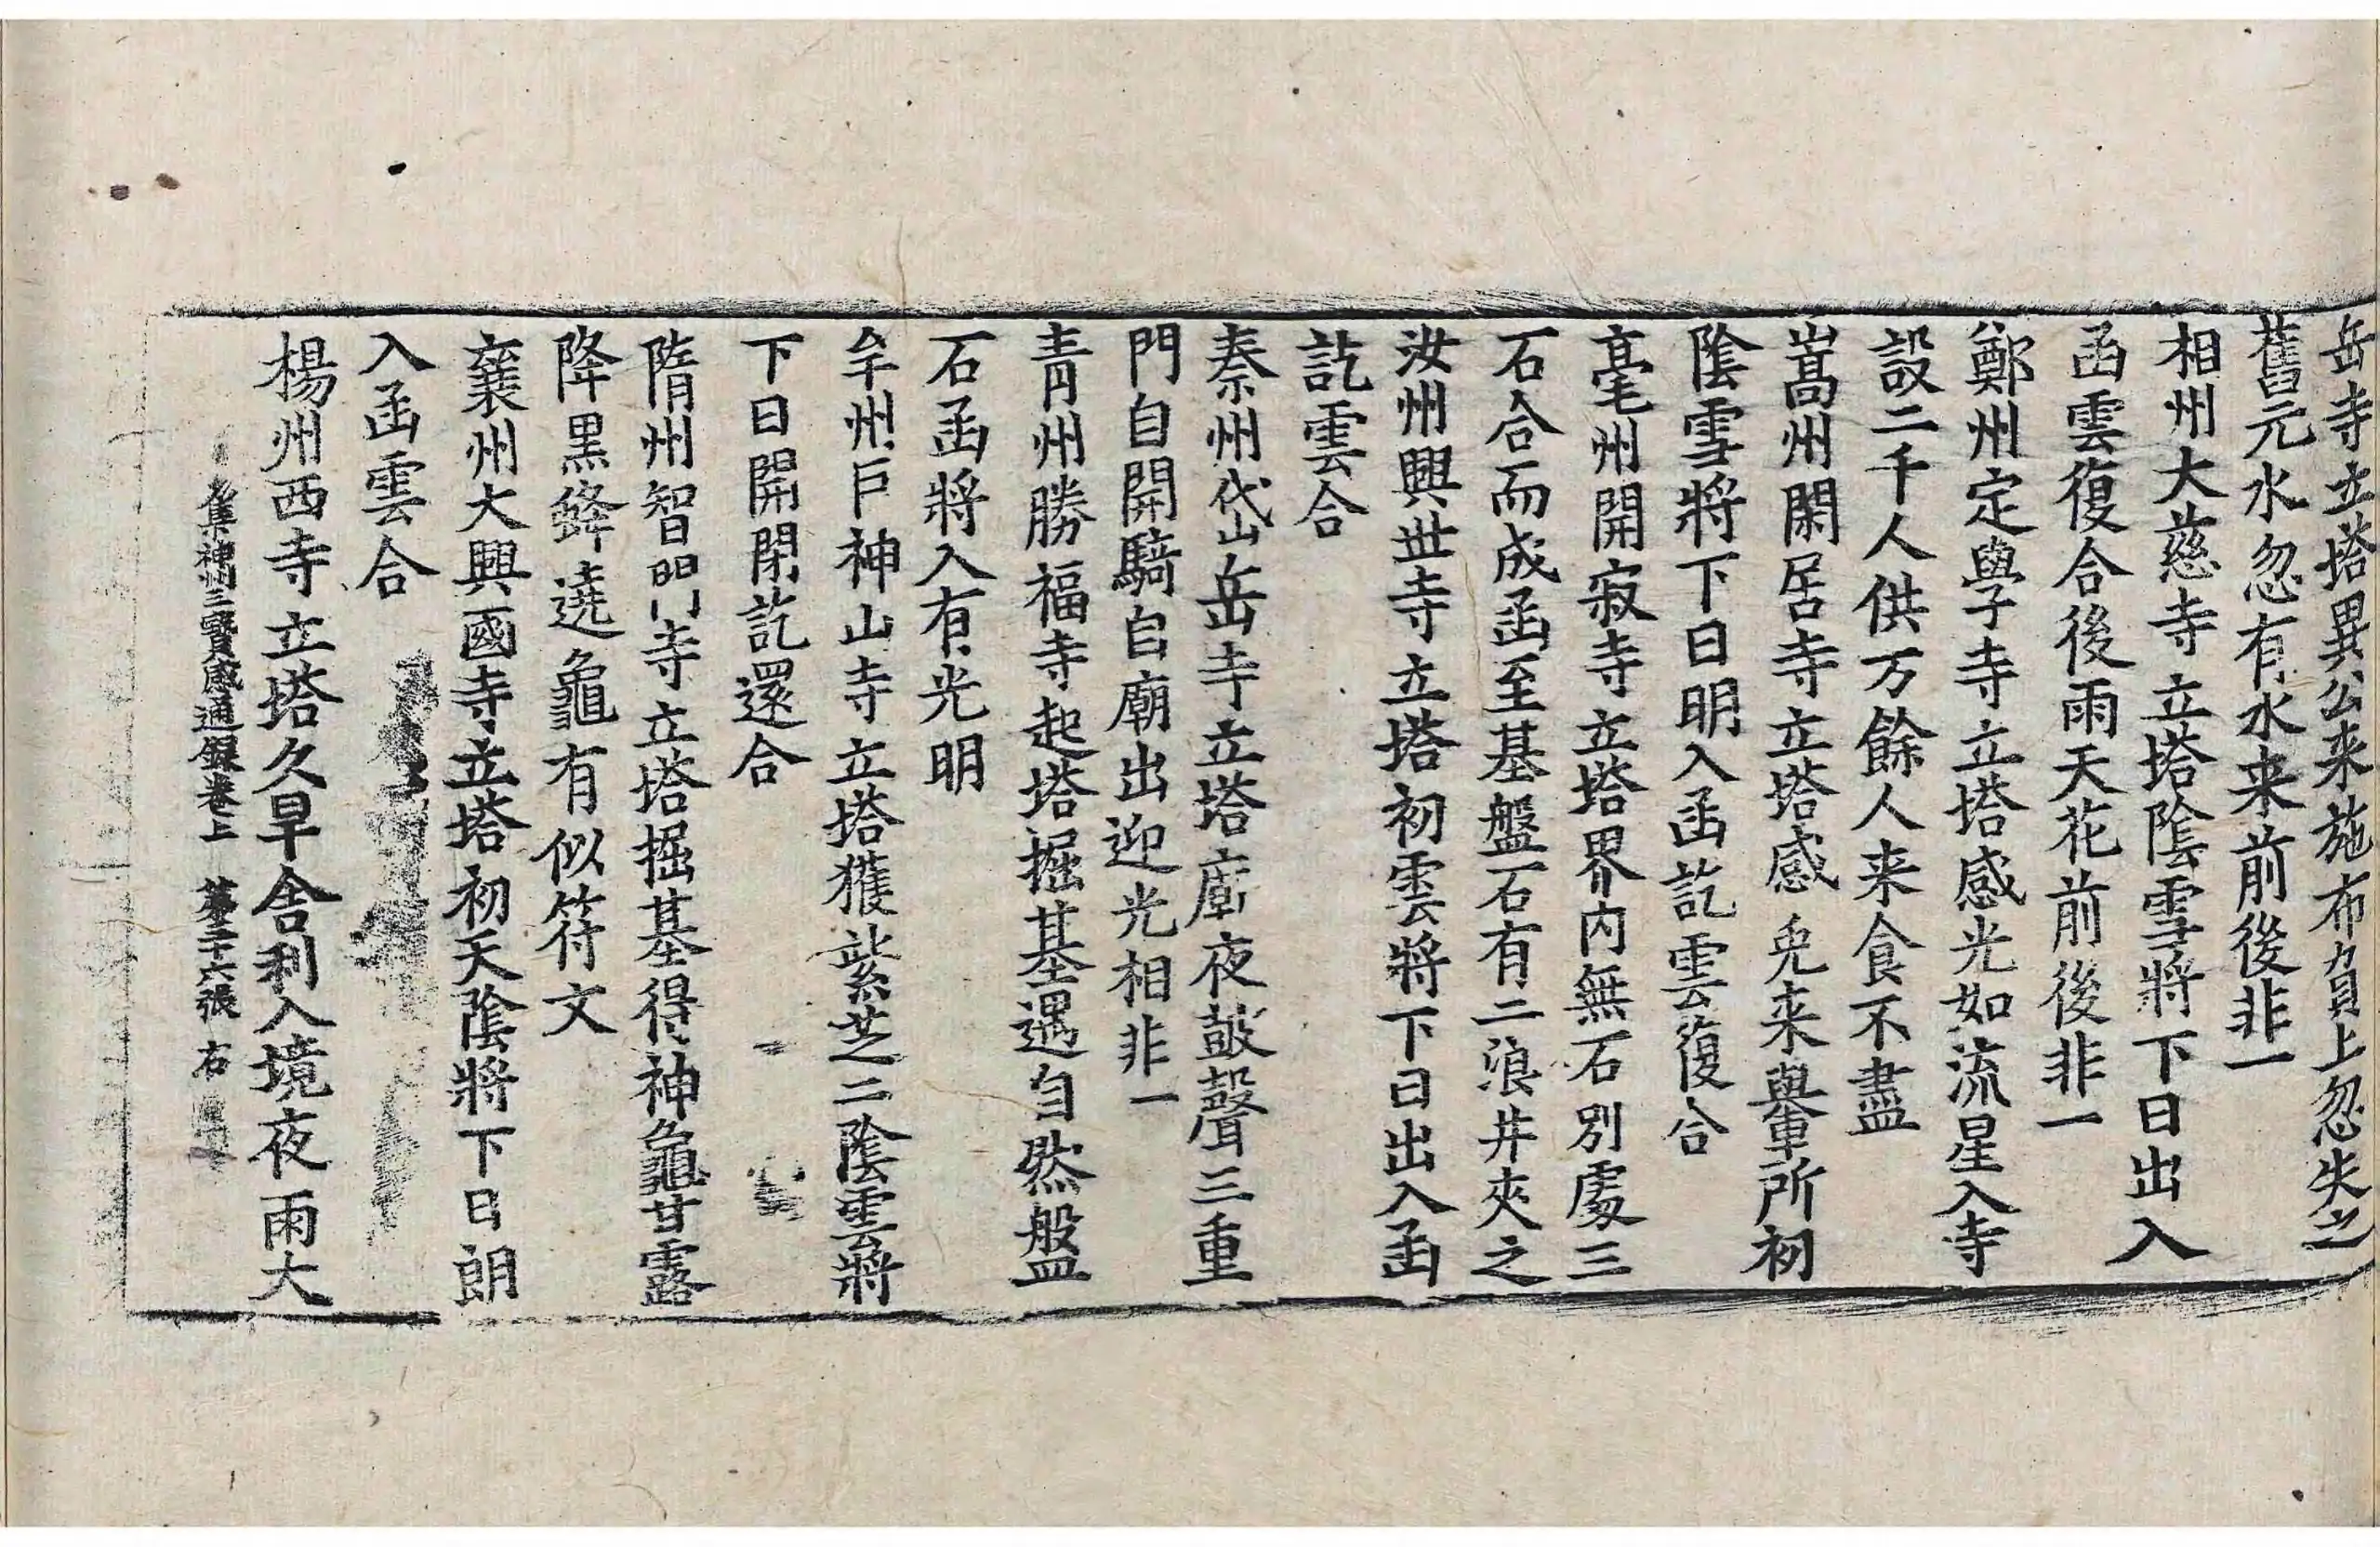 岳寺立塔異公来施布負上忽失之
舊元水忽有水来前後非一
相州大慈寺立塔隂雪將下日出入
函雲復合後雨天花前後非一
鄭州定學寺立塔感光如流星入寺
設二千人供万餘人来食不盡
嵩州閑居寺立塔感兎来轝所初
隂雪將下日明入函訖雲復合
亳州開寂寺立塔界内無石別處三
石合而成函至基盤石有二浪井夾之
汝州興世寺立塔初雲將下日出入函
訖雲合
泰州岱岳寺立塔廟夜鼓聲三重
門自開騎自廟出迎光相非一
青州勝福寺起塔掘基遇自然盤
石函將入有光明
牟州巨神山寺立塔獲紫芝二隂雲將
下日開閉訖還合
隋州智門寺立塔掘基得神龜甘露
降黒蜂遶龜有似符文
襄州大興國寺立塔初天隂將下日朗
入函雲合
楊州西寺立塔久旱舎利入境夜雨大
集神州三寶感通録卷上 第二十六張 右